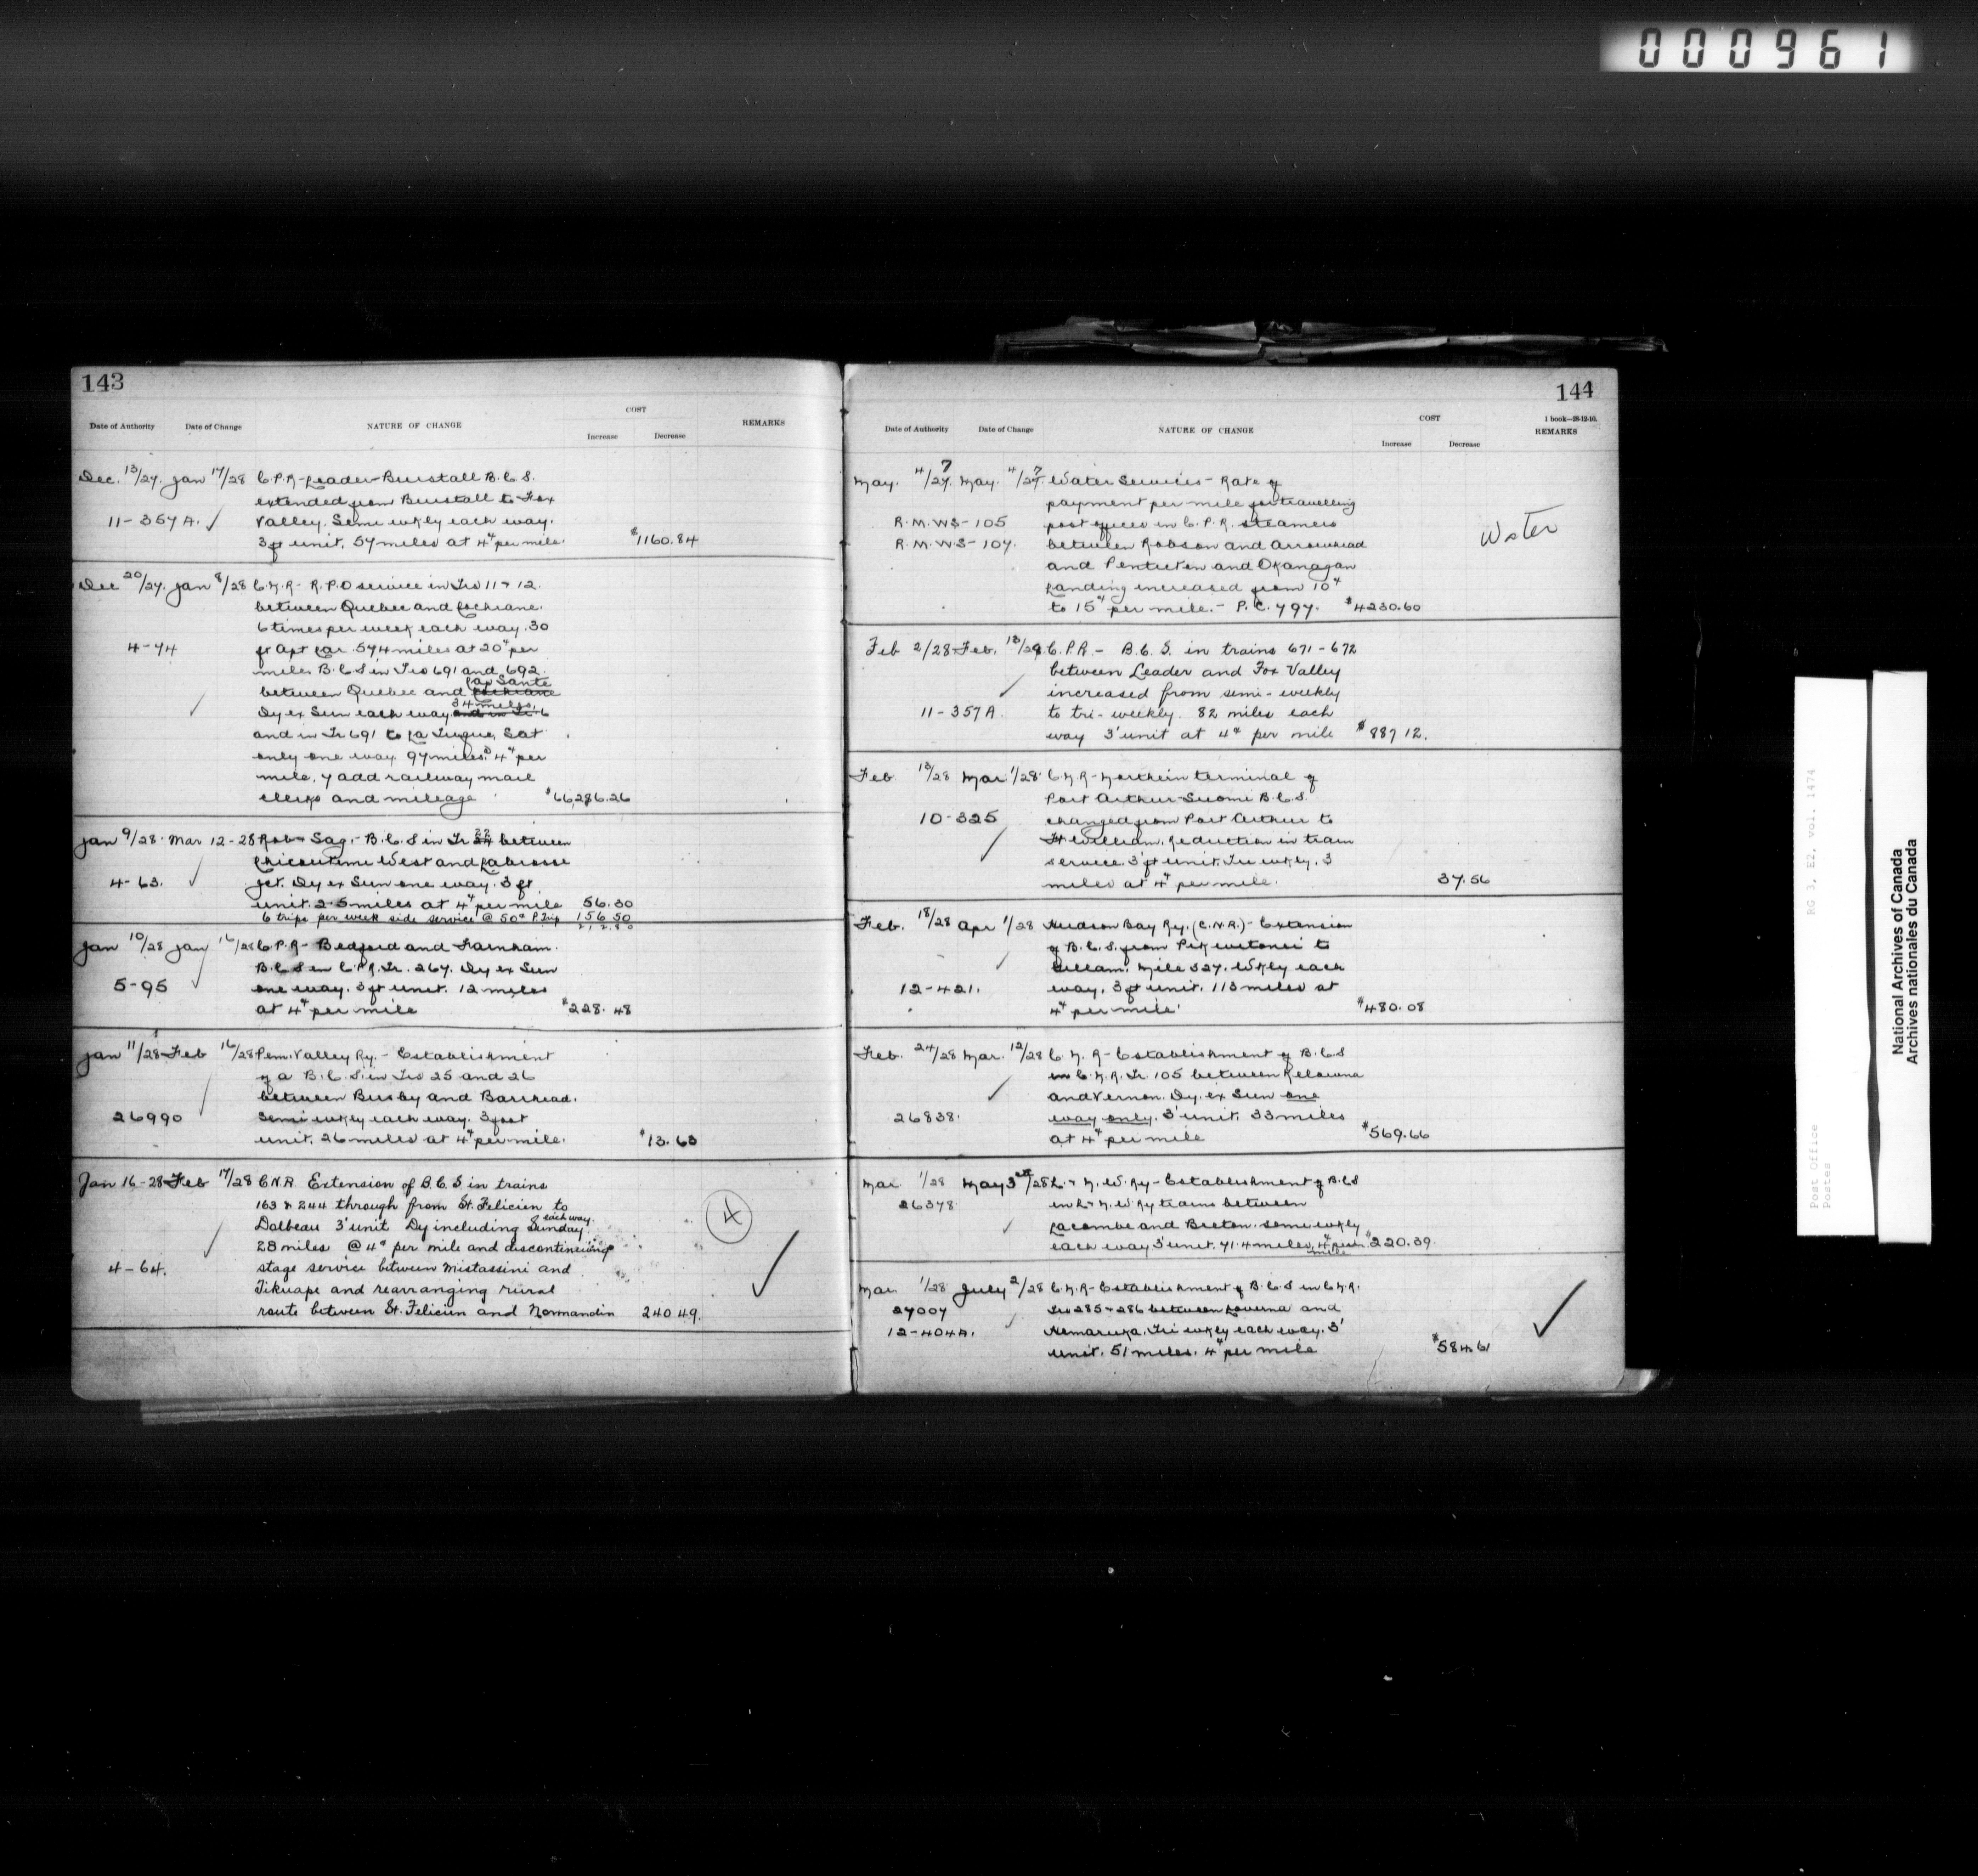 000961
143
Date of Authority Date of Change NATURE OF CHANGE COST Increase Decrease REMARKS
Dec. 13/27. Jan 17/28 C.P.R-Leader-Burstall B.C.S.
extended from Burstall to Fox
11-357A. ✓ Valley. Semi wkly each way.
3 ft unit. 57 miles at 4¢ per mile. $1160.84
Dec 20/27. Jan 8/28 C.N.R- R.P.O service in Trs 11 + 12.
between Quebec and Cochrane.
6 times per week each way. 30
4-74 ft Apt Car. 574 miles at 20¢ per
mile. B.C.S in Trs 691 and 692.
between Quebec and Cap Sante
✓ Dy ex Sun each way 34 miles.
and in Tr 691 to La Tuque, Sat
only one way 97 miles. 4¢ per
mile. 7 add railway mail
clerks and mileage $66286.26
Jan 9/28. Mar 12-28 Rob- Sag.- B.C.S in Tr 22 between
Chicoutimi West and Labrosse
4-63. ✓ Jct. Dy ex Sun one way. 3 ft
unit. 2.5 miles at 4¢ per mile 56.30
6 trips per week side service @ 50¢ P. Trip 156.50
212.80
Jan 10/28 Jan 16/28 C.P.R- Bedford and Farnham.
B.C.S in C.P.R. Tr. 267. Dy ex Sun
5-95 ✓ one way. 3 ft unit. 12 miles
at 4¢ per mile $228.48
Jan 11/28 Feb 16/28 Pem. Valley Ry. - Establishment
of a B.C.S. in Trs 25 and 26
✓ between Busby and Barrhead.
26990 Semi wkly each way. 3 foot
unit. 26 miles at 4¢ per mile. $13.63
Jan 16-28 Feb 17/28 C.N.R. Extension of B.C.S in trains
163 & 244 through from St. Felicien to
Dolbeau 3' unit Dy including Sunday each way.
✓ 28 miles @ 4¢ per mile and discontinuing
4-64. stage service between Mistassini and
Tikuape and rearranging rural
route between St. Felicien and Normandin 240 49.
4 ✓
144
1 book-28-12-16.
Date of Authority Date of Change NATURE OF CHANGE COST Increase Decrease REMARKS
May. 4/27. May. 4/27. Water Services - Rate of
payment per mile for travelling
R.M.W.S-105 post offices in C.P.R. steamers
R.M.W.S-107. between Robson and Arrowhead
and Penticton and Okanagan
Landing increased from 10¢
to 15¢ per mile. - P.C. 797. $4230.60
Water
Feb 2/28 Feb. 13/28 C.P.R.- B.C.S. in trains 671-672
between Leader and Fox Valley
✓ increased from semi-weekly
11-357A to tri-weekly. 82 miles each
way 3' unit at 4¢ per mile $887 12.
Feb 13/28 Mar 1/28 C.N.R-Northern terminal of
Port Arthur-Suomi B.C.S.
10-325 changed from Port Arthur to
✓ Ft William. Reduction in team
service. 3 ft unit. Tri wkly. 3
miles at 4¢ per mile. 37.56
Feb. 18/28 Apr 1/28 Hudson Bay Ry. (C.N.R.)- Extension
of B.C.S. from Pikwitonei to
✓ Gillam. Mile 327. Wkly each
12-421. way. 3 ft unit. 113 miles at
4¢ per mile. $480.08
Feb. 24/28 Mar. 12/28 C.N.R-Establishment of B.C.S
in C.N.R. Tr. 105 between Kelowna
✓ and Vernon. Dy. ex Sun one
26838. way only. 3' unit. 33 miles
at 4¢ per mile $569.66
Mar 1/28 May 3rd/28 L. + N.W. Ry-Establishment of B.C.S
26378 in L + N.W. Ry trains between
✓ Lacombe and Breton. Semi wkly
each way 3' unit. 71.4 miles. 4¢ per mile $220.39.
Mar 1/28 July 2/28 C.N.R-Establishment of B.C.S in C.N.R.
27007 Trs 285-286 between Loverna and
12-404A. ✓ Hemaruka. Tri wkly each way. 3'
unit. 51 miles. 4¢ per mile $584.61
✓
RG 3, E2, vol. 1474
Post Office
Postes
National Archives of Canada
Archives nationales du Canada